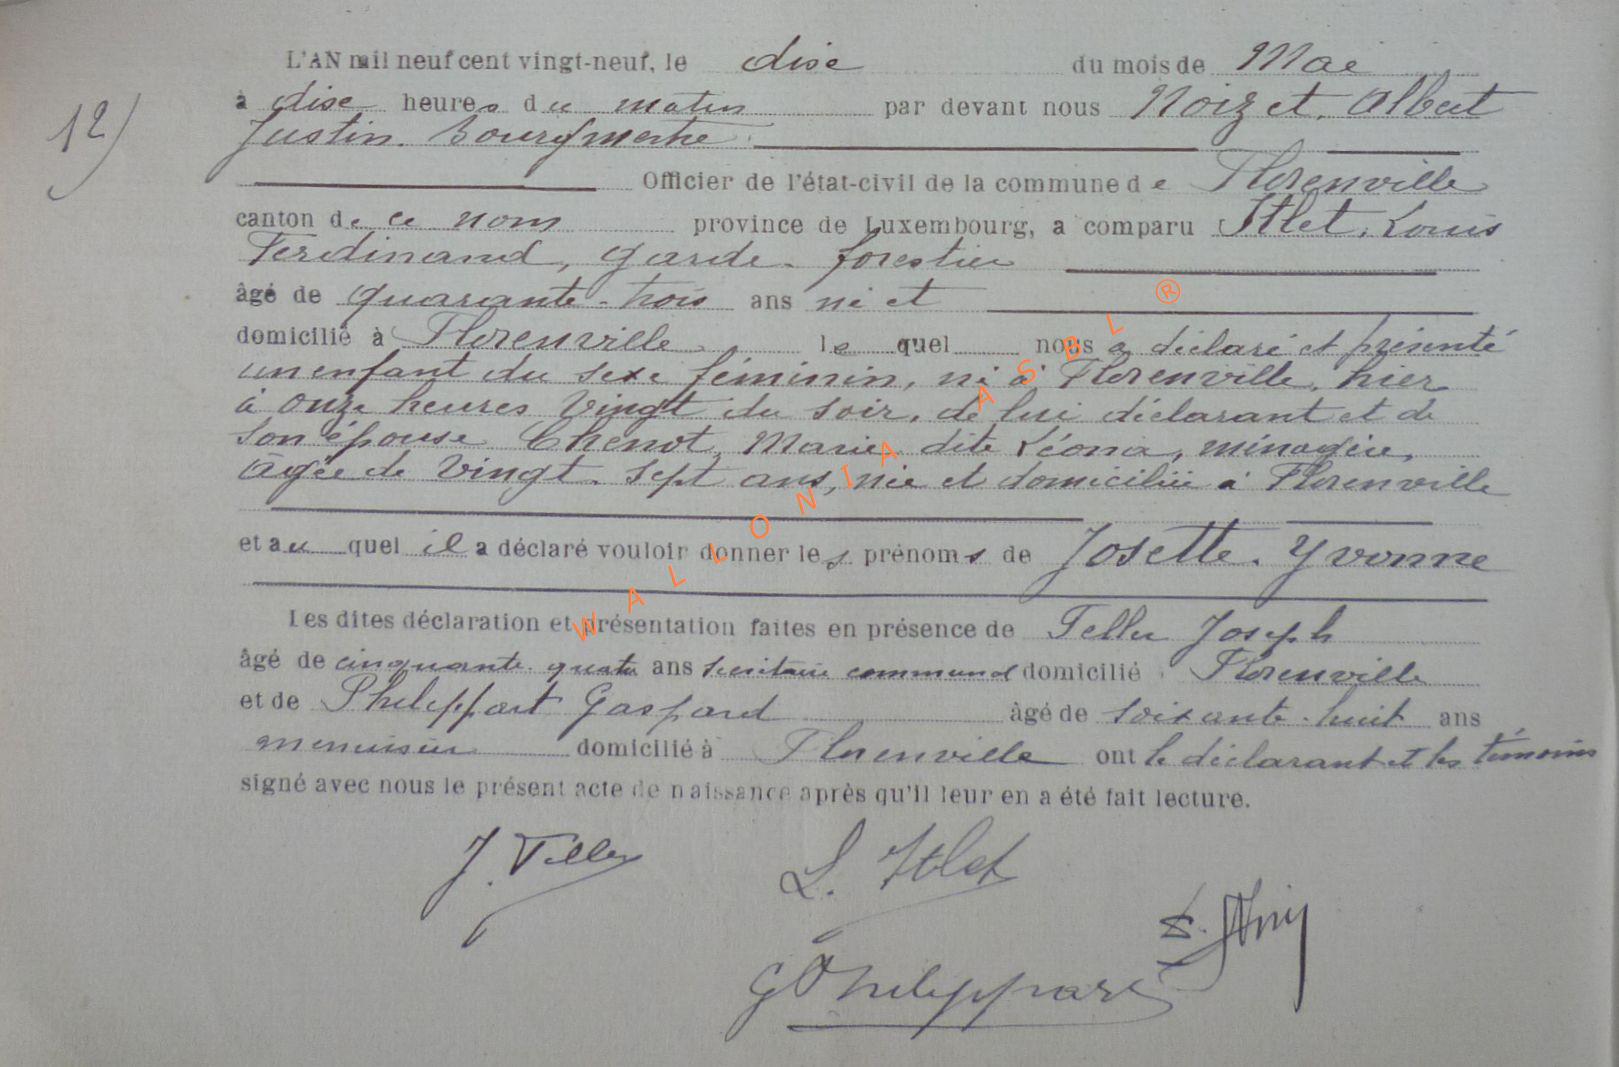 12)
L'AN mil neuf cent vingt-neuf, le dix du mois de Mai
à dix heures du matin par devant nous Noizet, Albert
Justin. Bourgmestre
Officier de l'état-civil de la commune de Florenville
canton de ce nom province de Luxembourg, a comparu Louis
Ferdinand, garde-forestier
âgé de quarante-trois ans né et
domicilié à Florenville lequel nous a déclaré et présenté
un enfant du sexe féminin, né à Florenville, hier
à onze heures vingt du soir, de lui déclarant et de
son épouse Chenot, Marie dite Léona, ménagère,
âgée de vingt-sept ans, née et domiciliée à Florenville
et auquel il a déclaré vouloir donner les prénoms de Josette. Yvonne
Les dites déclaration et présentation faites en présence de Joseph
âgé de cinquante-quatre ans secrétaire communal domicilié Florenville
et de Philippart Gaspard âgé de soixante-huit ans
menuisier domicilié à Florenville ont le déclarant et les témoins
signé avec nous le présent acte de naissance après qu'il leur en a été fait lecture.
G Philippart
WALLONIA ASBL ®